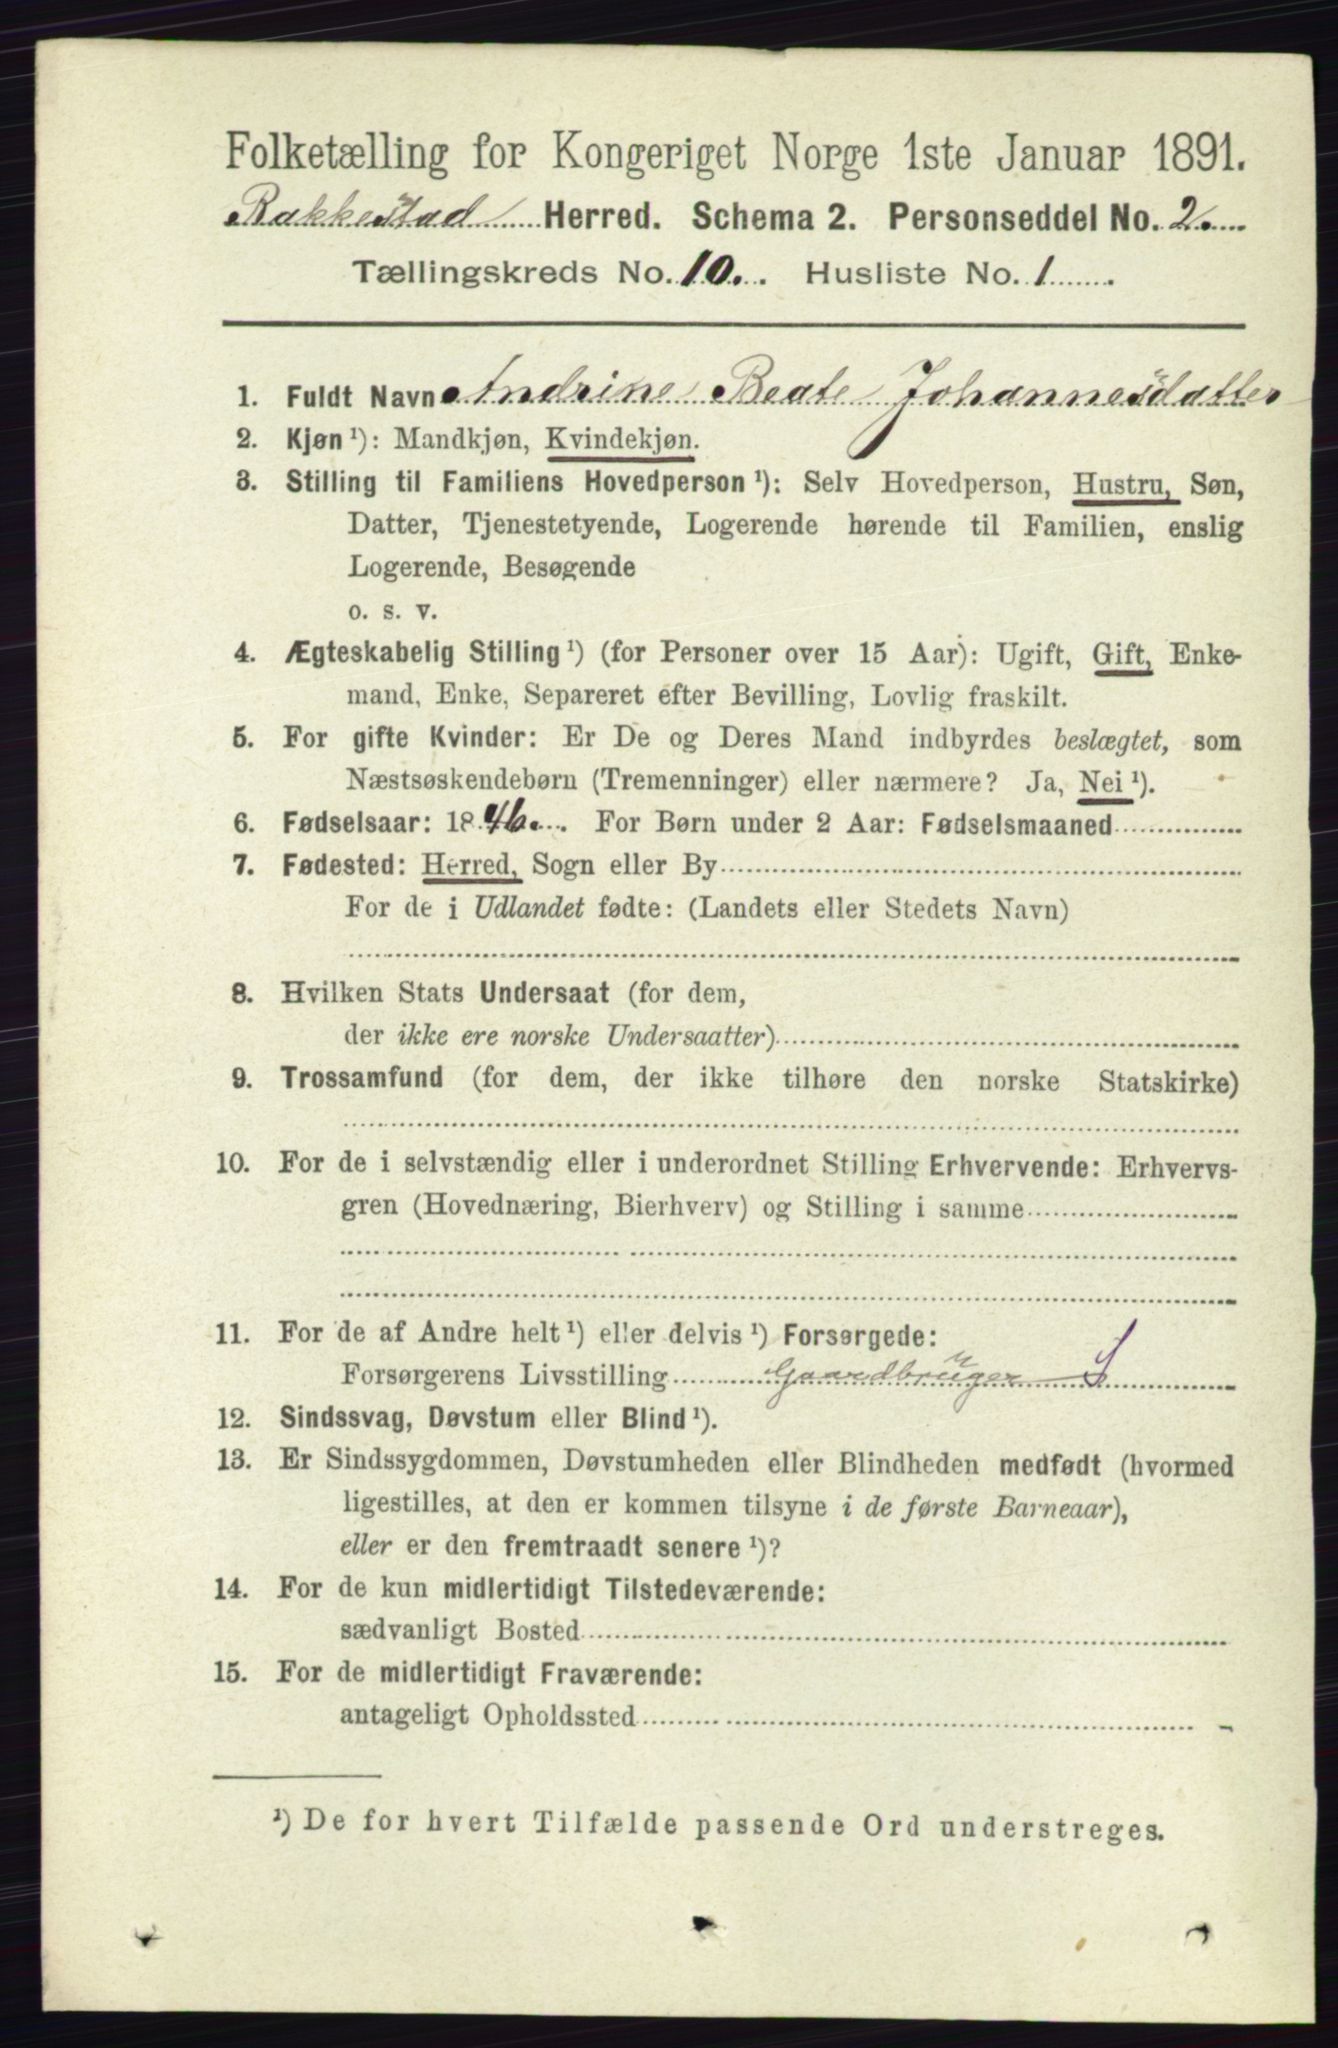 Folketælling for Kongeriget Norge 1ste Januar 1891.
Rakkestad Herred. Schema 2. Personseddel No. 2.
Tællingskreds No. 10. Husliste No. 1
1. Fuldt Navn Andrine Beate Johannesdatter
2. Kjøn ¹): Mandkjøn, Kvindekjøn.
3. Stilling til Familiens Hovedperson ¹): Selv Hovedperson, Hustru, Søn,
Datter, Tjenestetyende, Logerende hørende til Familien, enslig
Logerende, Besøgende
o. s. v.
4. Ægteskabelig Stilling ¹) (for Personer over 15 Aar): Ugift, Gift, Enke-
mand, Enke, Separeret efter Bevilling, Lovlig fraskilt.
5. For gifte Kvinder: Er De og Deres Mand indbyrdes beslægtet, som
Næstsøskendebørn (Tremenninger) eller nærmere? Ja, Nei ¹).
6. Fødselsaar: 1846. For Børn under 2 Aar: Fødselsmaaned
7. Fødested: Herred, Sogn eller By
For de i Udlandet fødte: (Landets eller Stedets Navn)
8. Hvilken Stats Undersaat (for dem,
der ikke ere norske Undersaatter)
9. Trossamfund (for dem, der ikke tilhøre den norske Statskirke)
10. For de i selvstændig eller i underordnet Stilling Erhvervende: Erhvervs-
gren (Hovednæring, Bierhverv) og Stilling i samme
11. For de af Andre helt ¹) eller delvis ¹) Forsørgede:
Forsørgerens Livsstilling Gaardbruger S
12. Sindssvag, Døvstum eller Blind ¹).
13. Er Sindssygdommen, Døvstumheden eller Blindheden medfødt (hvormed
ligestilles, at den er kommen tilsyne i de første Barneaar),
eller er den fremtraadt senere ¹)?
14. For de kun midlertidigt Tilstedeværende:
sædvanligt Bosted
15. For de midlertidigt Fraværende:
antageligt Opholdssted
¹) De for hvert Tilfælde passende Ord understreges.